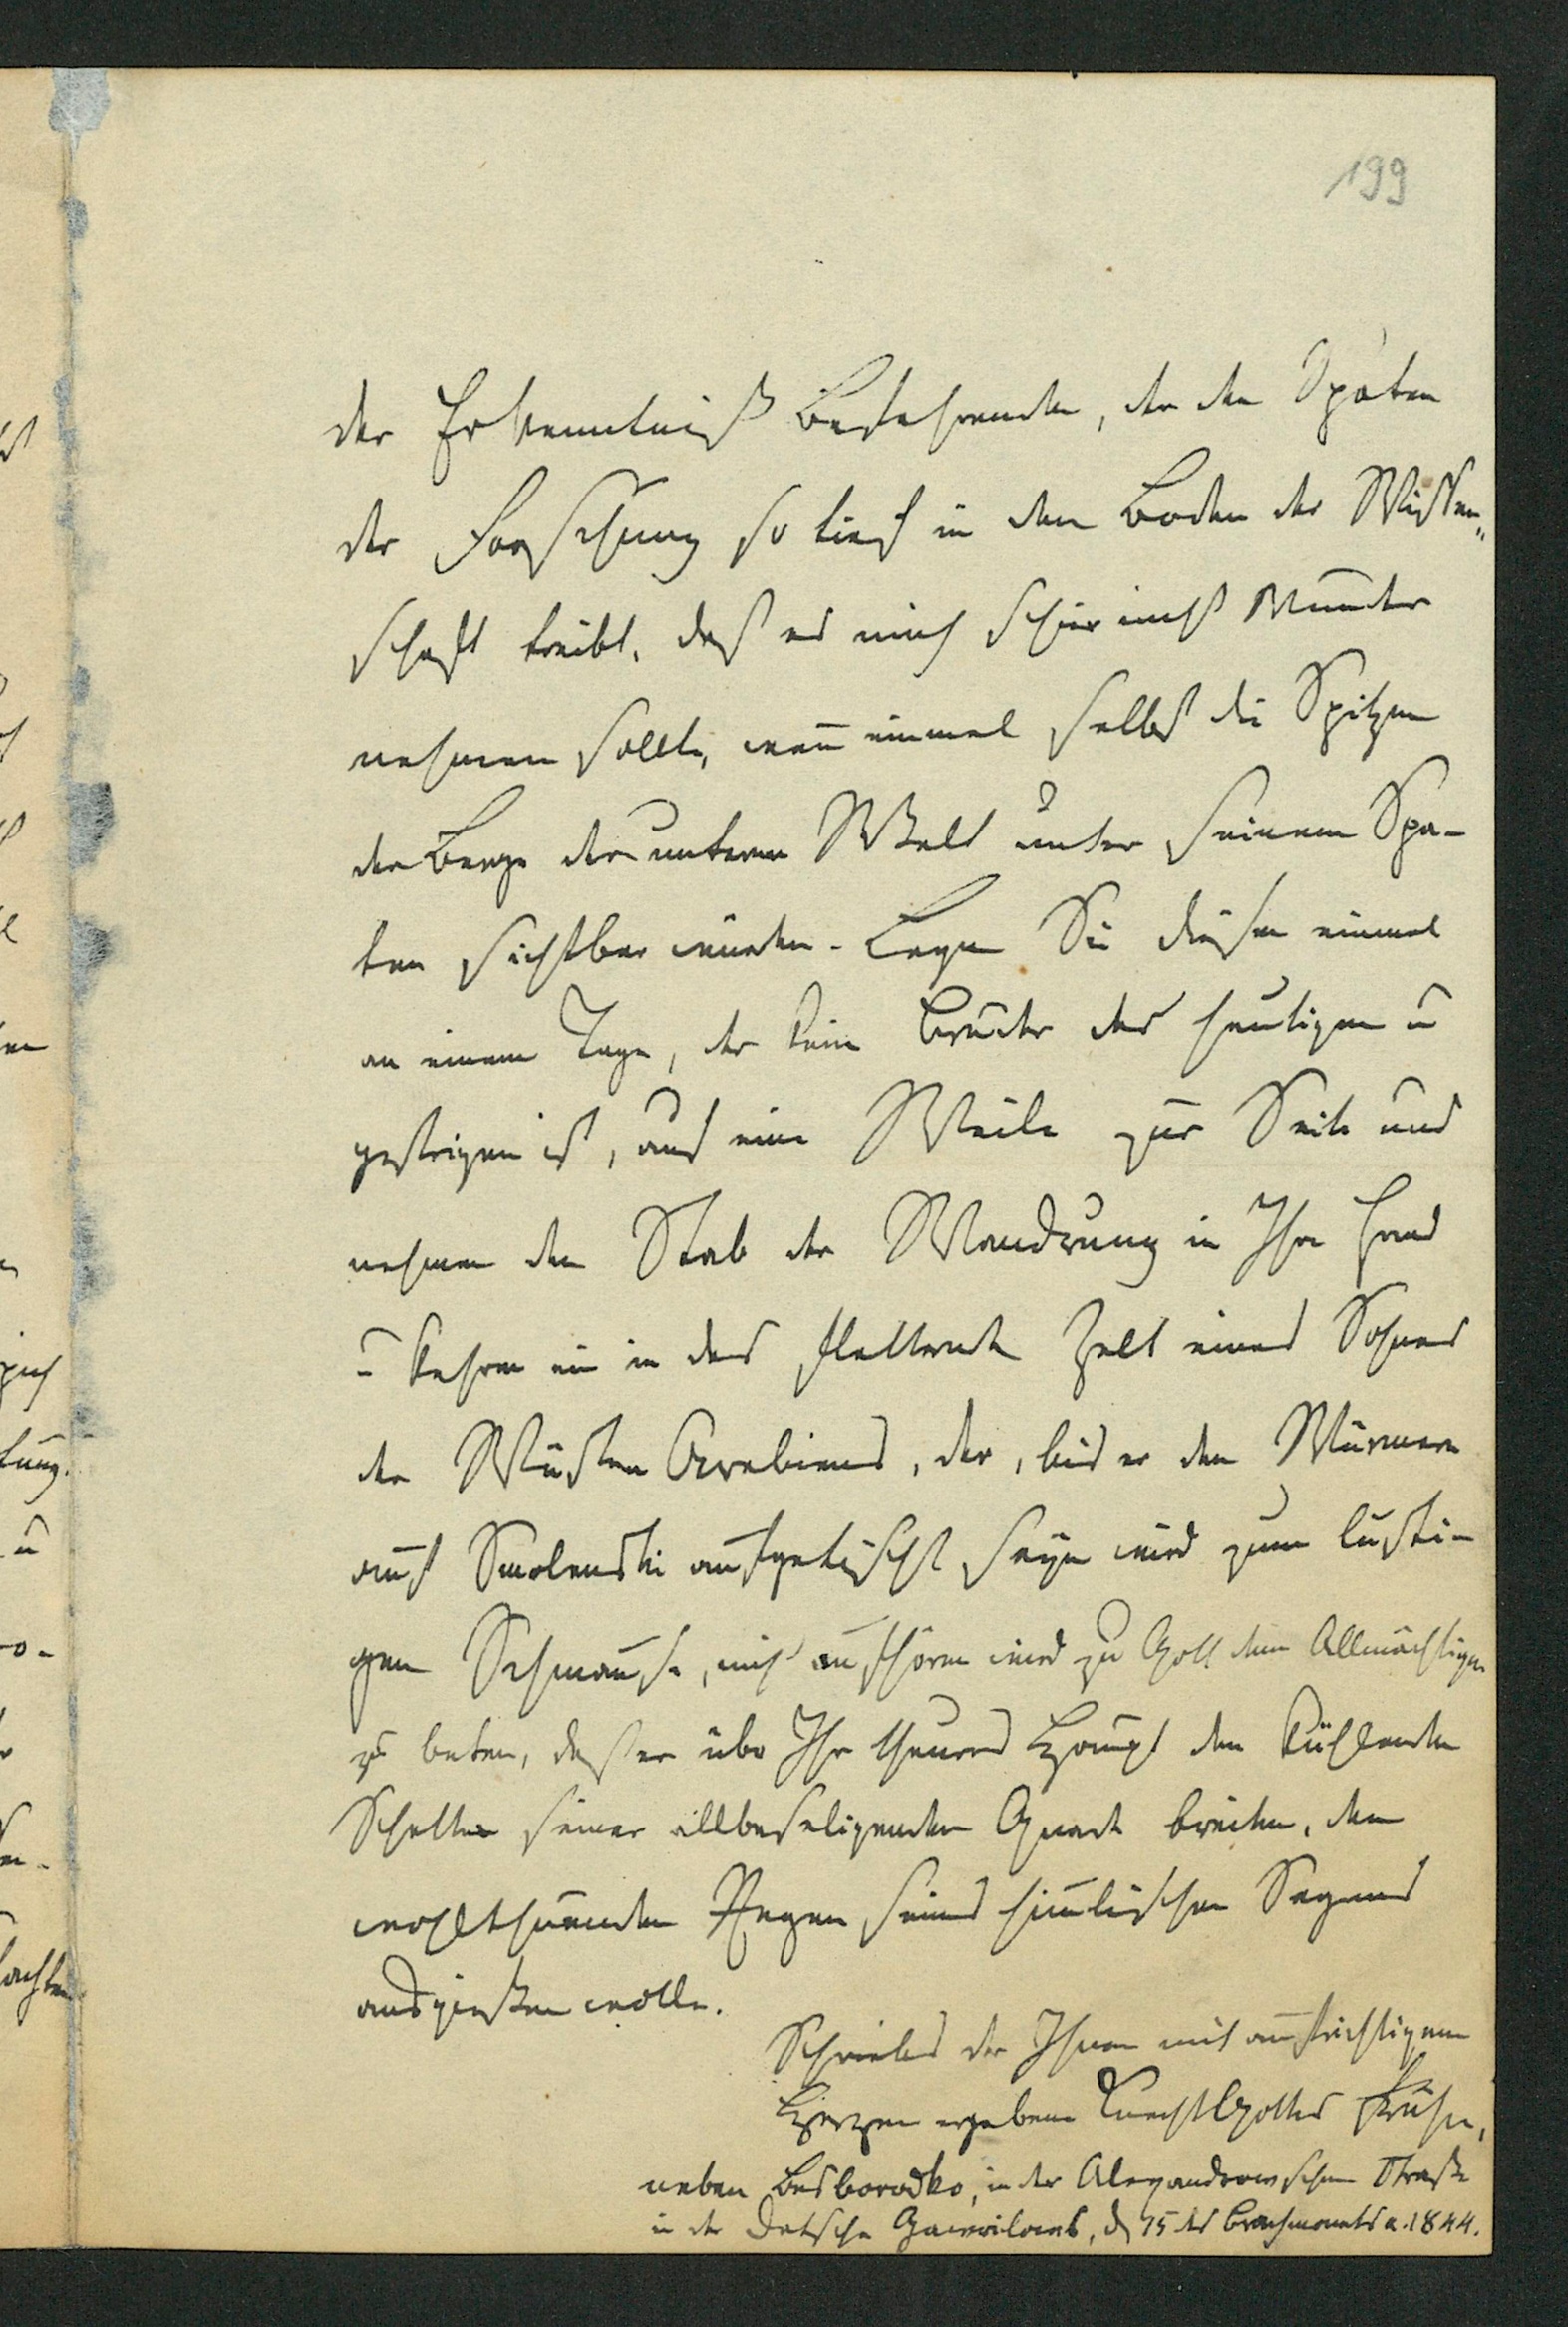 199
der Erkenntniß Begehrenden, der den Spaten
der Forschung so tief in den Boden der Wissen„
schaft treibt, daß es mich schier nicht Wunder
nehmen sollte, wenn einmal selbst die Spitzen
der Berge der unteren Welt unter seinem Spa-
ten sichtbar würden. Legen Sie diesen einmal
an einem Tage, der kein Bruder des heutigen u
gestrigen ist, auf eine Weile zur Seite und
nehmen den Stab der Wandrung in Ihre Hand
u kehren ein in das flatternde Zelt eines Sohnes
der Wüsten Arabiens, der, bis er den Würmern
auf Smolenski aufgetischt seyn wird zum lusti-
gen Schmause, nicht aufhören wird zu Gott dem Allmächtigen
zu beten, daß er über Ihr theures Haupt den kühlenden
Schatten seiner allbeseligenden Gnade breiten, den
wohlthuenden Regen seines himlischen Segens
ausgießen wolle.
Schriebs der Ihnen mit aufrichtigem
Herzen ergebene Knecht Gottes
neben Besborodko, in der Alexandrowschen Straße
in der Datsche Gawrilows, d 15 des Brachmonats a. 1844.